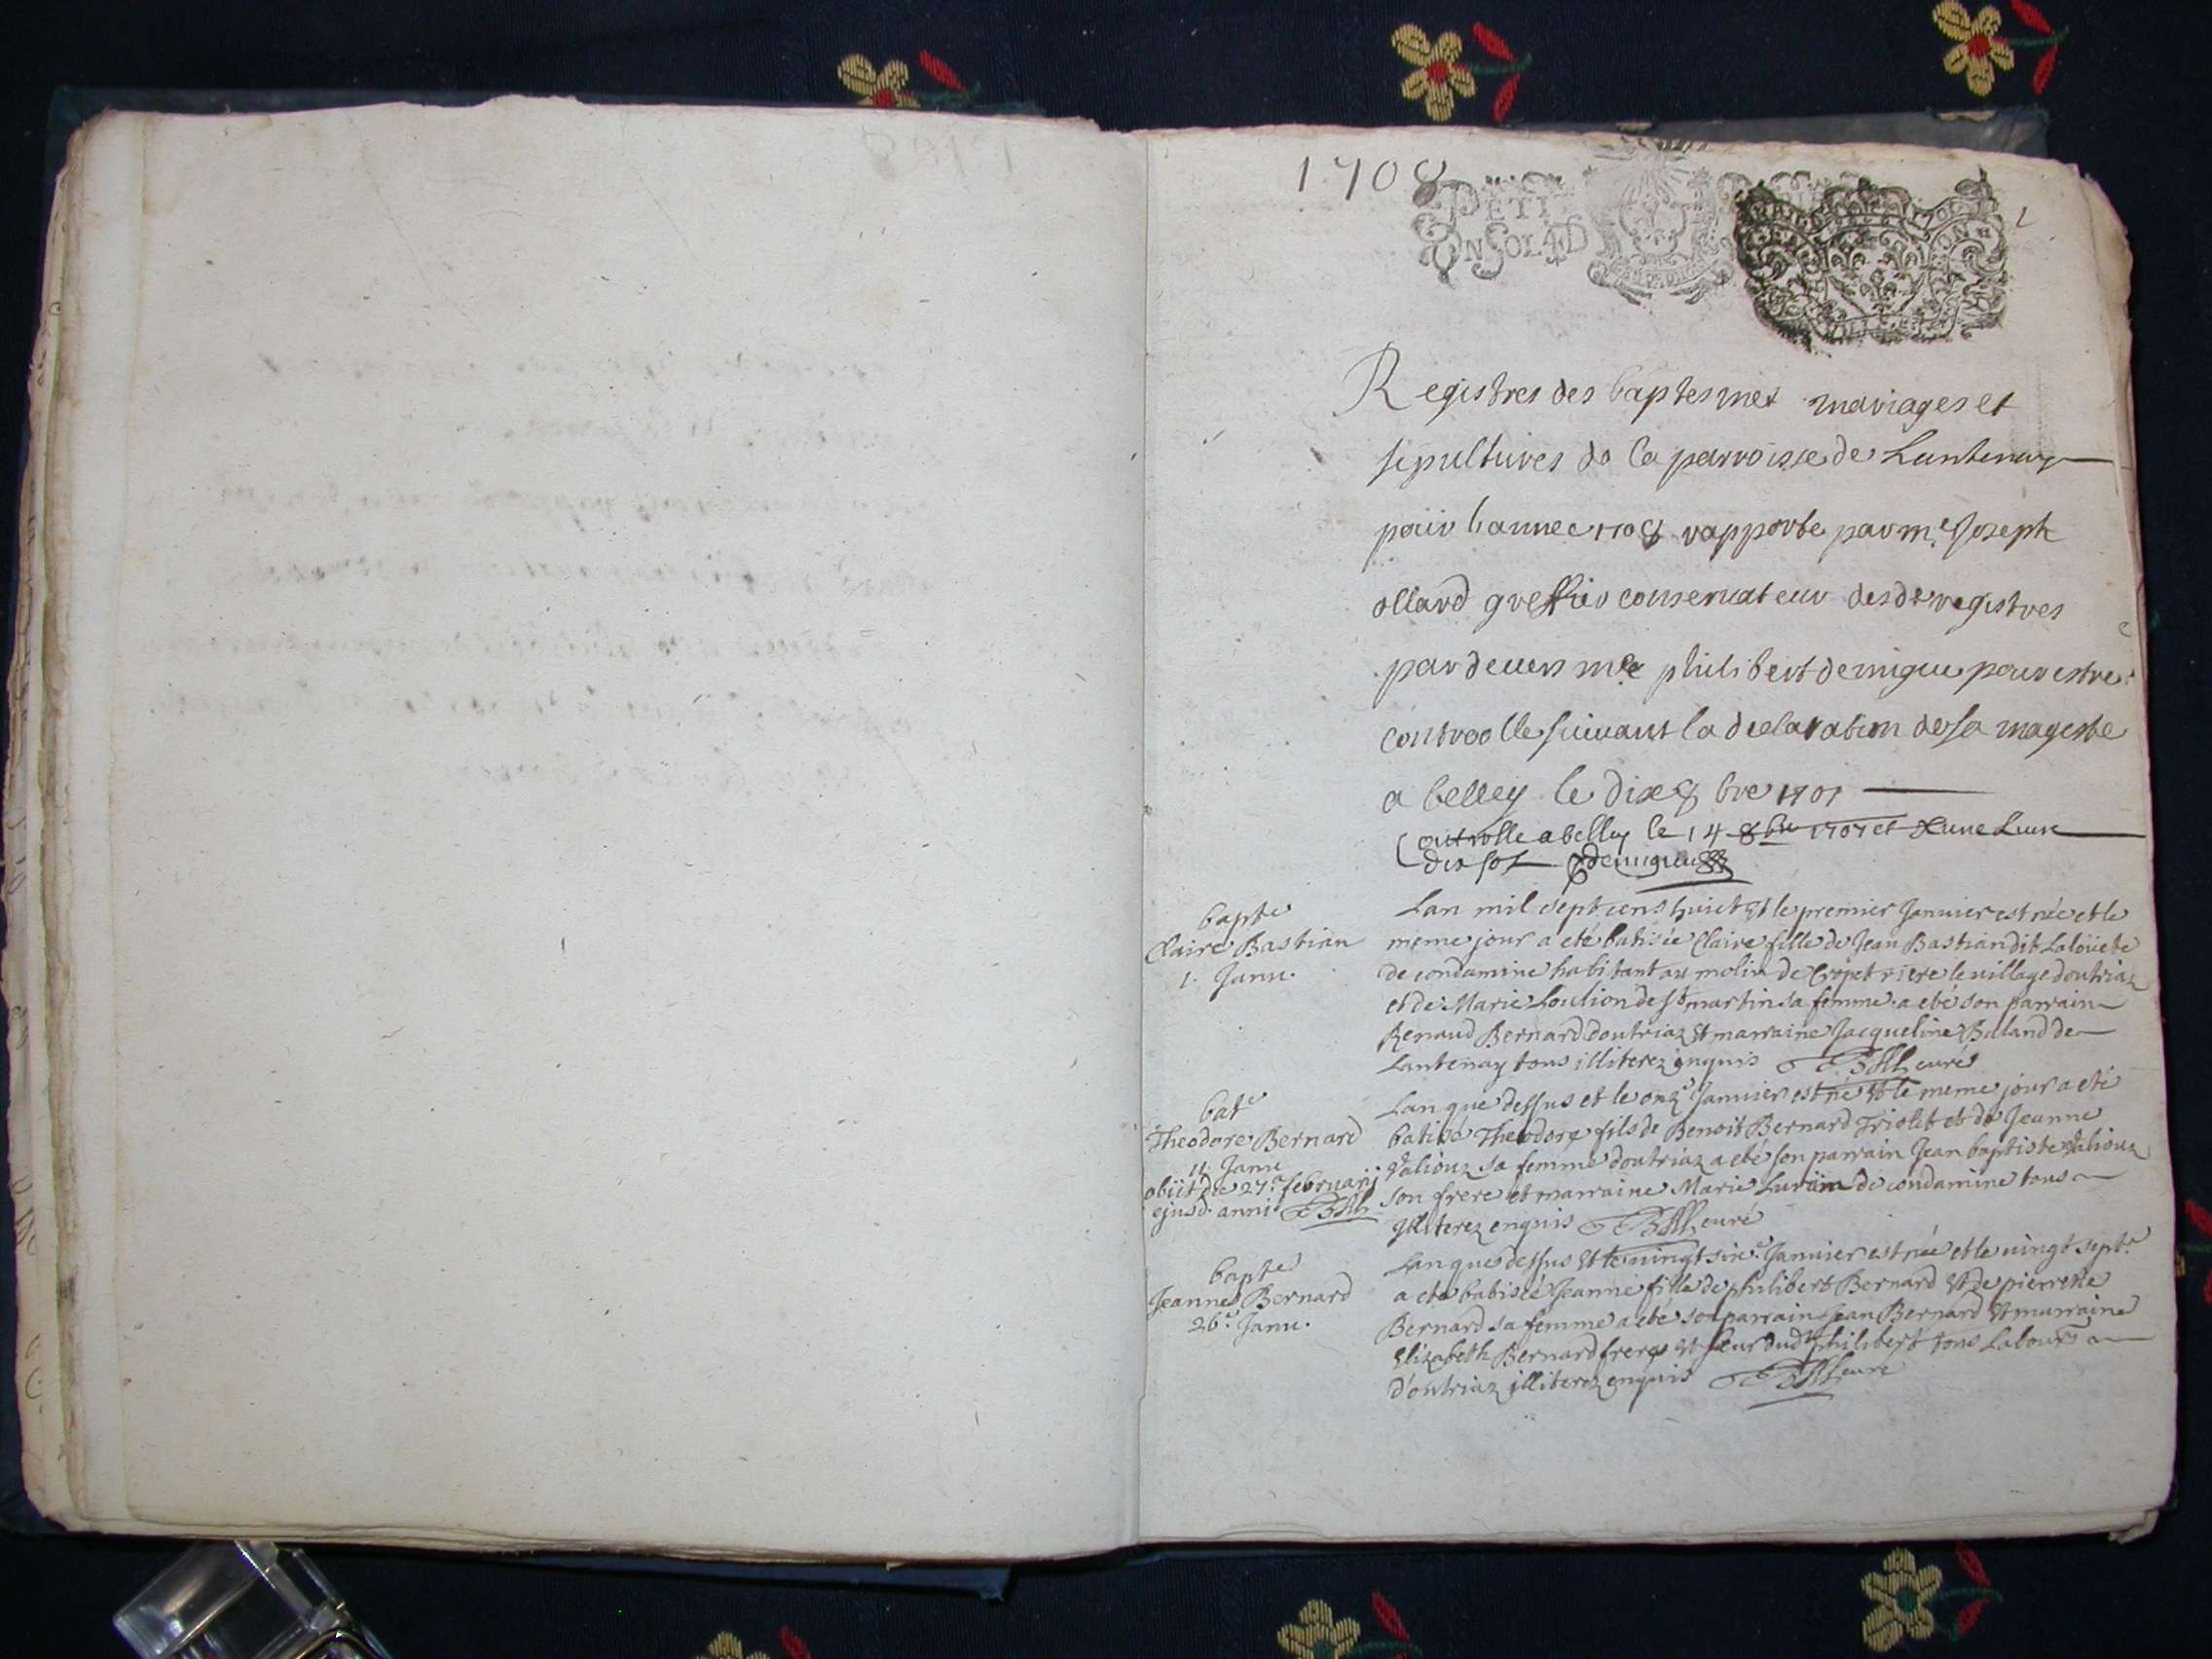 1708
PETIT
UN SOL 4D
Registres des baptesmes mariages et
sepultures de la parroisse de Lantenay
pour lannee 1708 rapporte par me Joseph
ollard greffier conservateur desdts registres
pardevers me philibert demigieu pour estre
controolle suivant la declaration de sa mageste
a belley le dix 8bre 1707
Controlle a belley le 14 8bre 1707 et
dix sols demigieu
bapte
Claire Bastian
1. Janu.
Lan mil sept cens huict et le premier Janvier est née et le
meme jour a eté batisée Claire fille de Jean Bastian dit Laloüete
de condamine habitant au molin de Cropet riere le village doutriaz
et de Marie Loulion de st martin sa femme. a eté son parrain
Renaud Bernard doutriaz et marraine Jacqueline Buland de
Lantenay tous illiterez enquis curé
bate
Theodore Bernard
11. Janu
obiit die 27a februarij
ejusd. anni
Lan que dessus et le onze Janvier est né et le meme jour a eté
batisé Theodore fils de Benoit Bernard Triolet et de Jeanne
Valiouz sa femme doutriaz a eté son parrain Jean baptiste Valiouz
son frere et marraine Marie de condamine tous
Illiterez enquis curé
bapte
Jeanne Bernard
26e Janu.
Lan que dessus et le vingt sixe Janvier est née et le vingt septe
a eté batisée Jeanne fille de philibert Bernard et de pierrette
Bernard sa femme a eté son parrain Jean Bernard et marraine
Elizabeth Bernard frere et soeur dudt philibert tous Labours
d'outriaz illiterez enquis curé